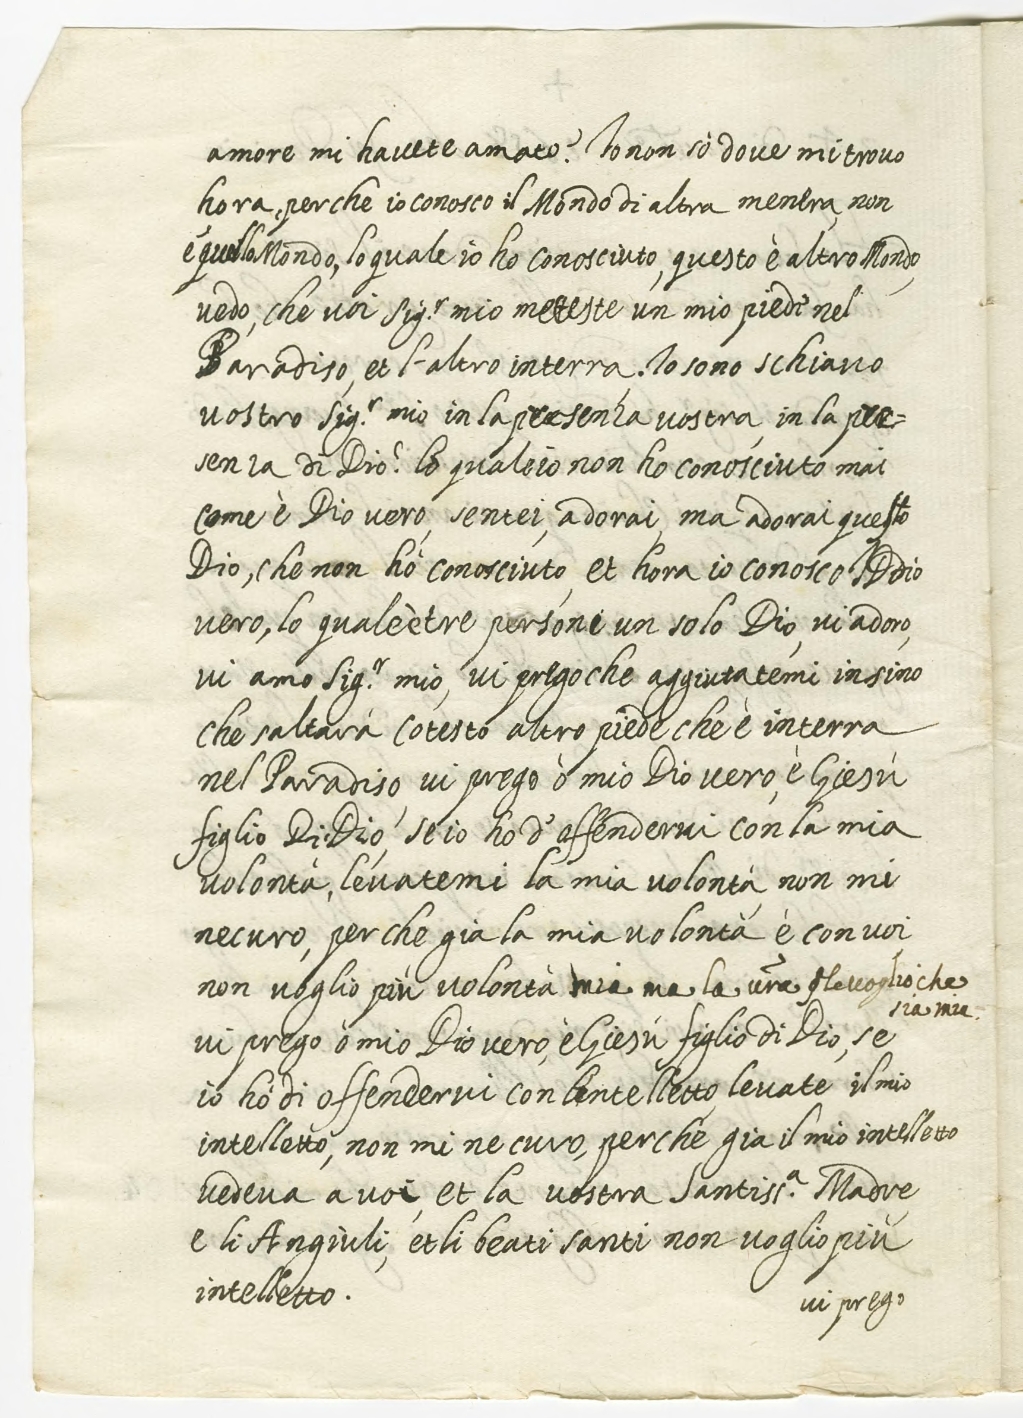 amore mi havete amato? Io non sò dove mi trovo
hora, perche io conosco il Mondo di altra menera, non
è quello Mondo, lo quale io ho conosciuto, questo è altro Mondo,
vedo, che voi Sig.r mio metteste un mio piede nel
Paradiso, et l'altro in terra. Io sono schiavo
vostro Sig.r mio in la presenza vostra, in la pre=
senza di Dio. lo quale io non ho conosciuto mai
come è Dio vero, sentei, adorai, ma adorai questo
Dio, che non hò conosciuto, et hora io conosco Iddio
vero, lo quale è tre persone un solo Dio, vi adoro,
vi amo Sig.r mio, vi prego che aggiutatemi insino
che saltarà cotesto altro piede che è in terra
nel Paradiso, vi prego ò mio Dio vero, è Giesù
figlio Di Dio, se io ho d'offendervi con la mia
volontà, levatemi la mia volontà, non mi
ne curo, perche gia la mia volontà è con voi,
non voglio più volontà mia ma la vr̃a che voglio che
sia mia.
vi prego ò mio Dio vero, è Giesù figlio di Dio, se
io hò di offendervi con l'intelletto, levate il mio
intelletto, non mi ne curo, perche gia il mio intelletto
vedeva a voi, et la vostra Santiss.a Madre
e li Angiuli, et li beati santi non voglio più
intelletto.
vi prego